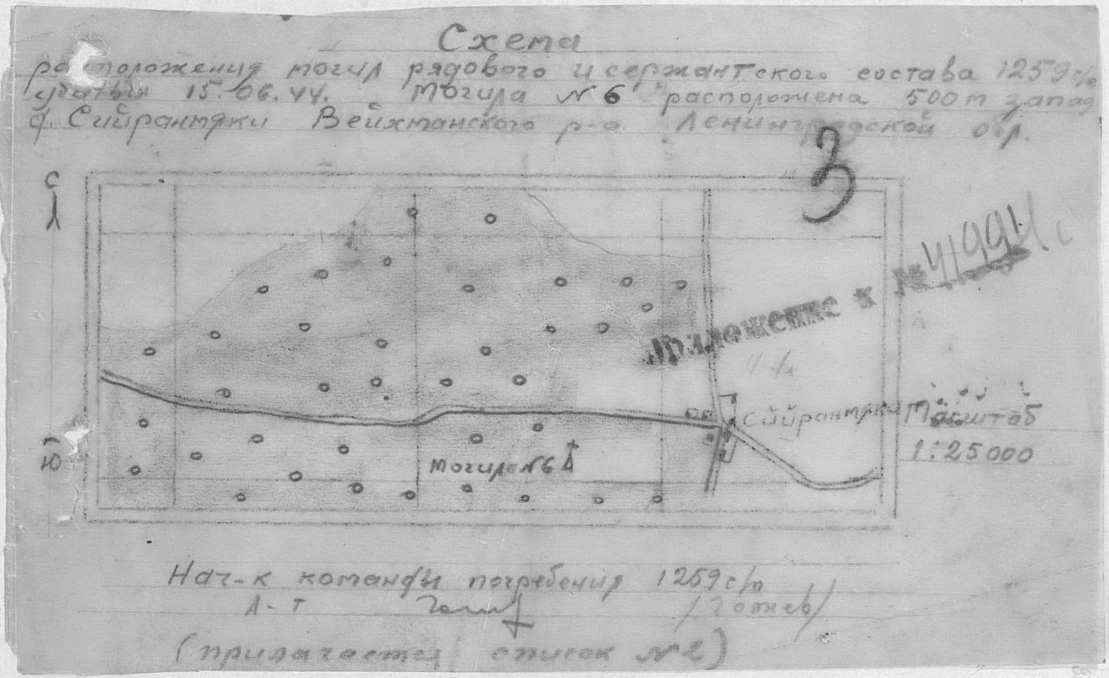 Схема
расположения могил рядового и сержантского состава 1259 с/п
убитых 15.06.44. Могила №6 расположена 500 м запад
д. Сийрантяки Вейхтанского р-а Ленинградской обр.
3
С
Приложение к № 41994 с
Сийрантяки
Масштаб
1:25000
Ю
могила №6
Нач-к команды погребения 1259 с/п
Л-т
(прилагается список №2)